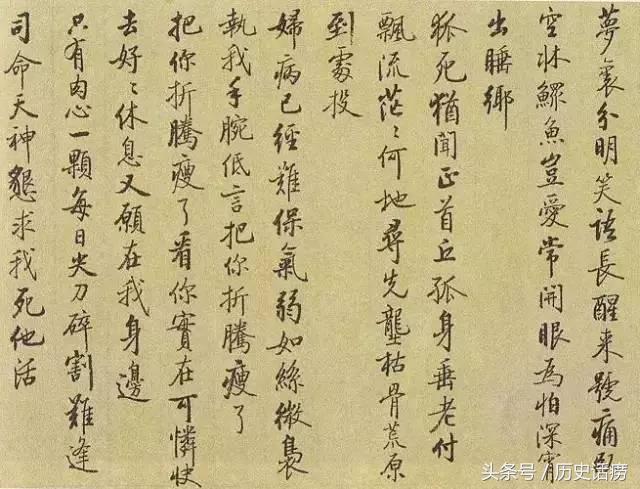 夢裏分明笑語長醒来號痛臥
空牀鰥魚豈愛常開眼為怕深宵
出睡鄉
狐死猶聞正首丘孤身垂老付
飄流茫〻何地尋先壟枯骨荒原
到處投
婦病已經難保氣弱如絲微裊
執我手腕低言把你折騰瘦了
把你折騰瘦了看你實在可憐快
去好〻休息又願在我身邊
只有肉心一顆每日尖刀碎割難逢
司命天神懇求我死他活
头条号/历史话痨